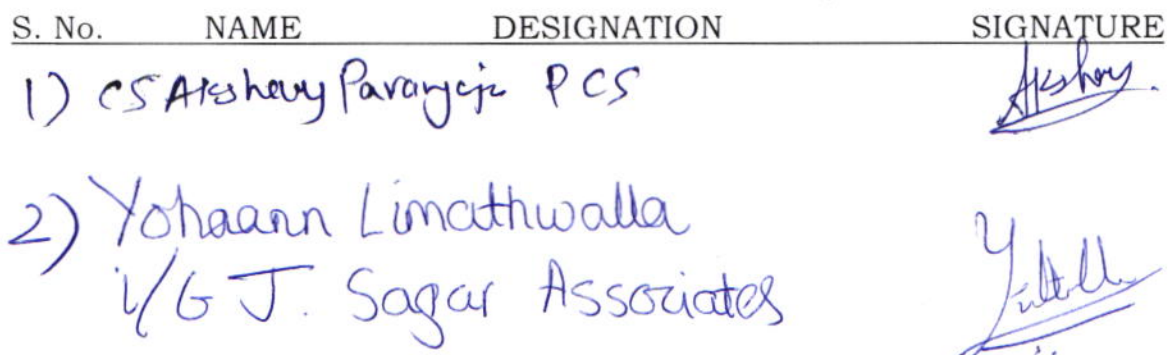 S. No. NAME DESIGNATION SIGNATURE
1) CS Akshay Paranjape PCS Akshay.
2) Yohaann Limathwalla
i/G J. Sagar Associates